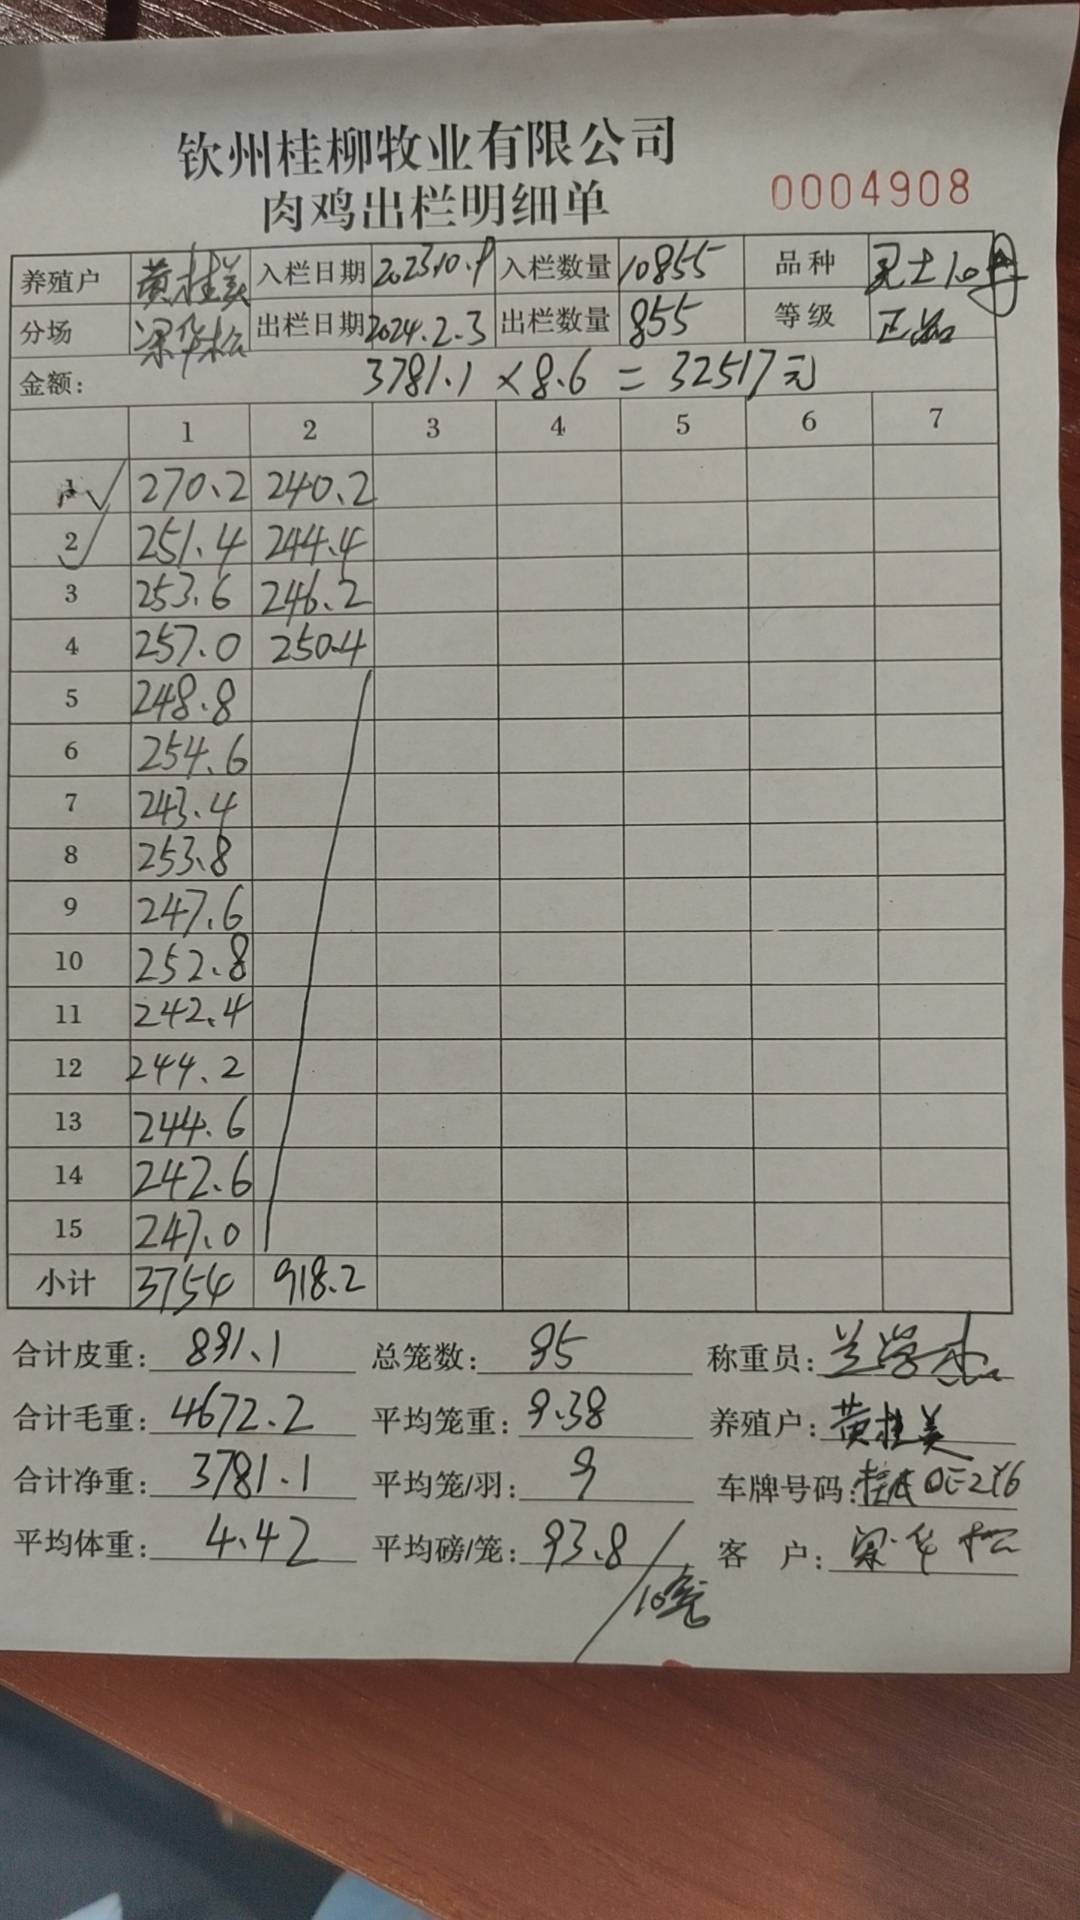 钦州桂柳牧业有限公司
肉鸡出栏明细单 0004908
养殖户 黄桂美 入栏日期 2023.10.9 入栏数量 10855 品种 灵土1.0母
分场 梁华松 出栏日期 2024.2.3 出栏数量 855 等级 正品
金额: 3781.1×8.6=32517元
1 2 3 4 5 6 7
1 270.2 240.2
2 251.4 244.4
3 253.6 246.2
4 257.0 250.4
5 248.8
6 254.6
7 243.4
8 253.8
9 247.6
10 252.8
11 242.4
12 244.2
13 244.6
14 242.6
15 247.0
小计 3754 918.2
合计皮重: 891.1 总笼数: 95 称重员:
合计毛重: 4672.2 平均笼重: 9.38 养殖户: 黄桂美
合计净重: 3781.1 平均笼/羽: 9 车牌号码:
平均体重: 4.42 平均磅/笼: 93.8/10笼 客户: 梁华松